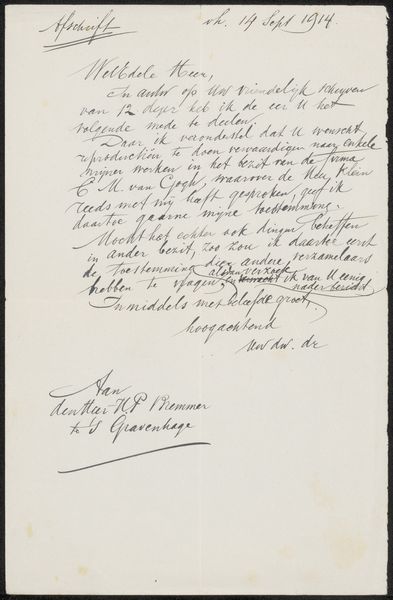 Afschrift
vh. 14 Sept 1914.
WelEdele Heer,
In antw op Uw vriendelijk schrijven
van 12 dezer heb ik de eer U het
volgende mede te deelen.
Daar ik veronderstel dat U wenscht
reproductiën te doen vervaardigen naar enkele
mijner werken in het bezit van de firma
C. M. van Gogh, waarover de Heer Klein
reeds met mij heeft gesproken, geef ik
daartoe gaarne mijne toestemming.
Mocht het echter ook dingen betreffen
in ander bezit, zoo zou ik daartoe eerst
de toestemming dier andere verzamelaars
hebben te vragen, alsdan verzoek ik van U eenig
nader bericht
Inmiddels met beleefde groet,
hoogachtend
Uw dw. dr
Aan
den Heer H.P. Bremmer
te 's Gravenhage